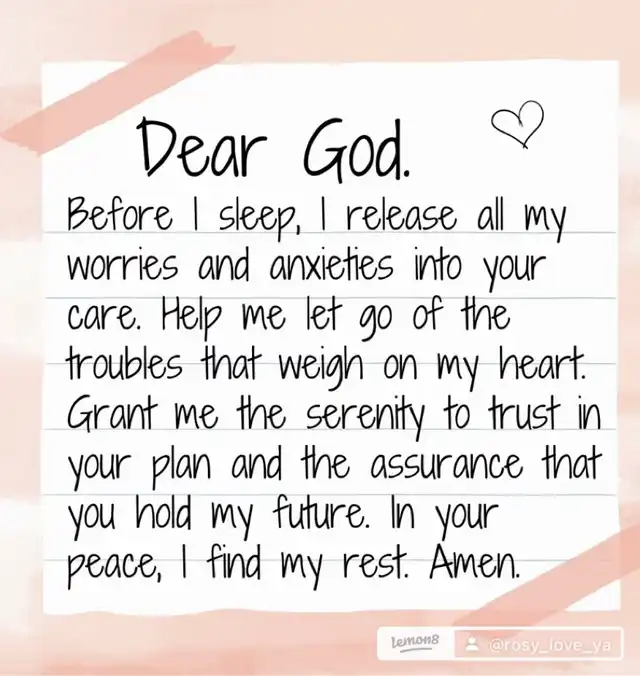 Dear God.
Before I sleep, I release all my
worries and anxieties into your
care. Help me let go of the
troubles that weigh on my heart.
Grant me the serenity to trust in
your plan and the assurance that
you hold my future. In your
peace, I find my rest. Amen.
lemon8 @rosy_love_ya